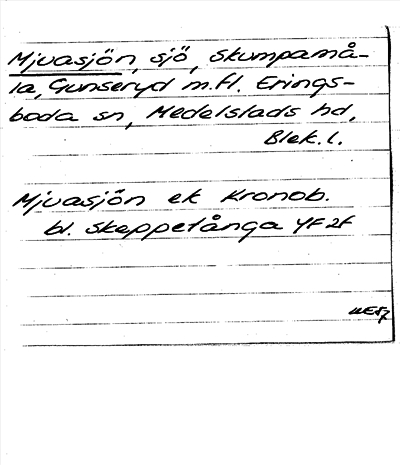 Mjuasjön, sjö, Skumpamå-
la, Gunseryd m.fl. Erings-
boda sn, Medelstads hd,
Blek. l.
Mjuasjön ek Kronob.
bl. Skeppetånga 4F 2f